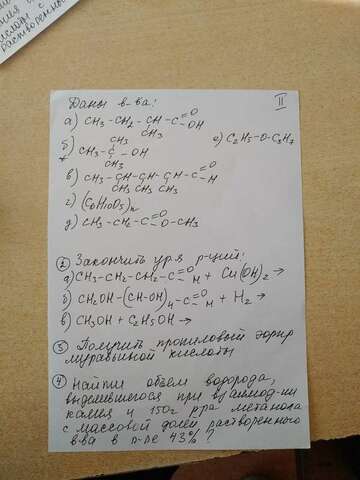 Даны в-ва:
II
а) CH3-CH2-CH-C=O
OH
CH3
CH3
б) CH3-C-OH
CH3
е) C2H5-O-C3H7
в) CH3-CH-CH-CH-C=O
H
CH3 CH3 CH3
г) (C6H10O5)n
д) CH3-CH2-C=O
O-CH3
② Закончить ур-я р-ций:
а) CH3-CH2-CH2-C=O
H + Cu(OH)2 →
б) CH2OH-(CH-OH)4-C=O
H + H2 →
в) CH3OH + C2H5OH →
③ Получить пропиловый эфир
муравьиной кислоты
④ Найти объем водорода,
выделившегося при взаимод-ии
калия и 150г р-ра метанола
с массовой долей растворенного
в-ва в р-ре 43%?